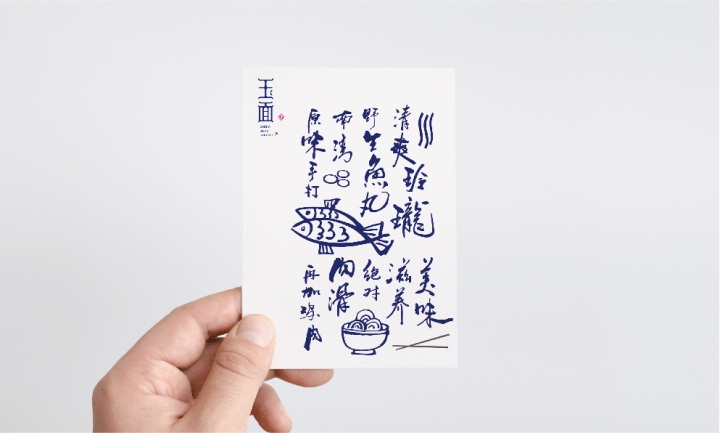 玉面
清爽玲瓏
野生魚丸
南
原味手打
美味
滋养
绝对
肉滑
再加肉